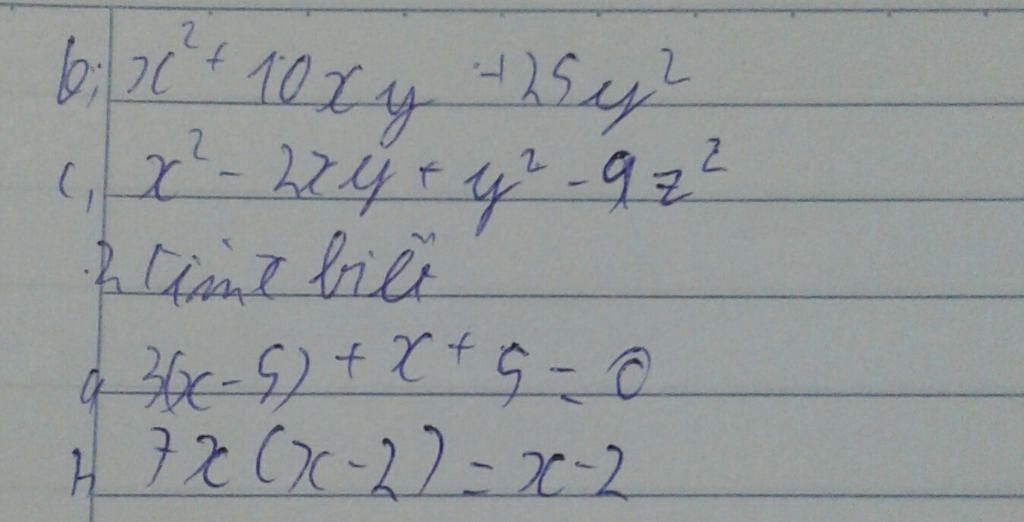 b, x² + 10xy + 25y²
c, x² - 2xy + y² - 9z²
2 Tìm x biết
a 3(x - 5) + x + 5 = 0
b 7x(x - 2) = x - 2